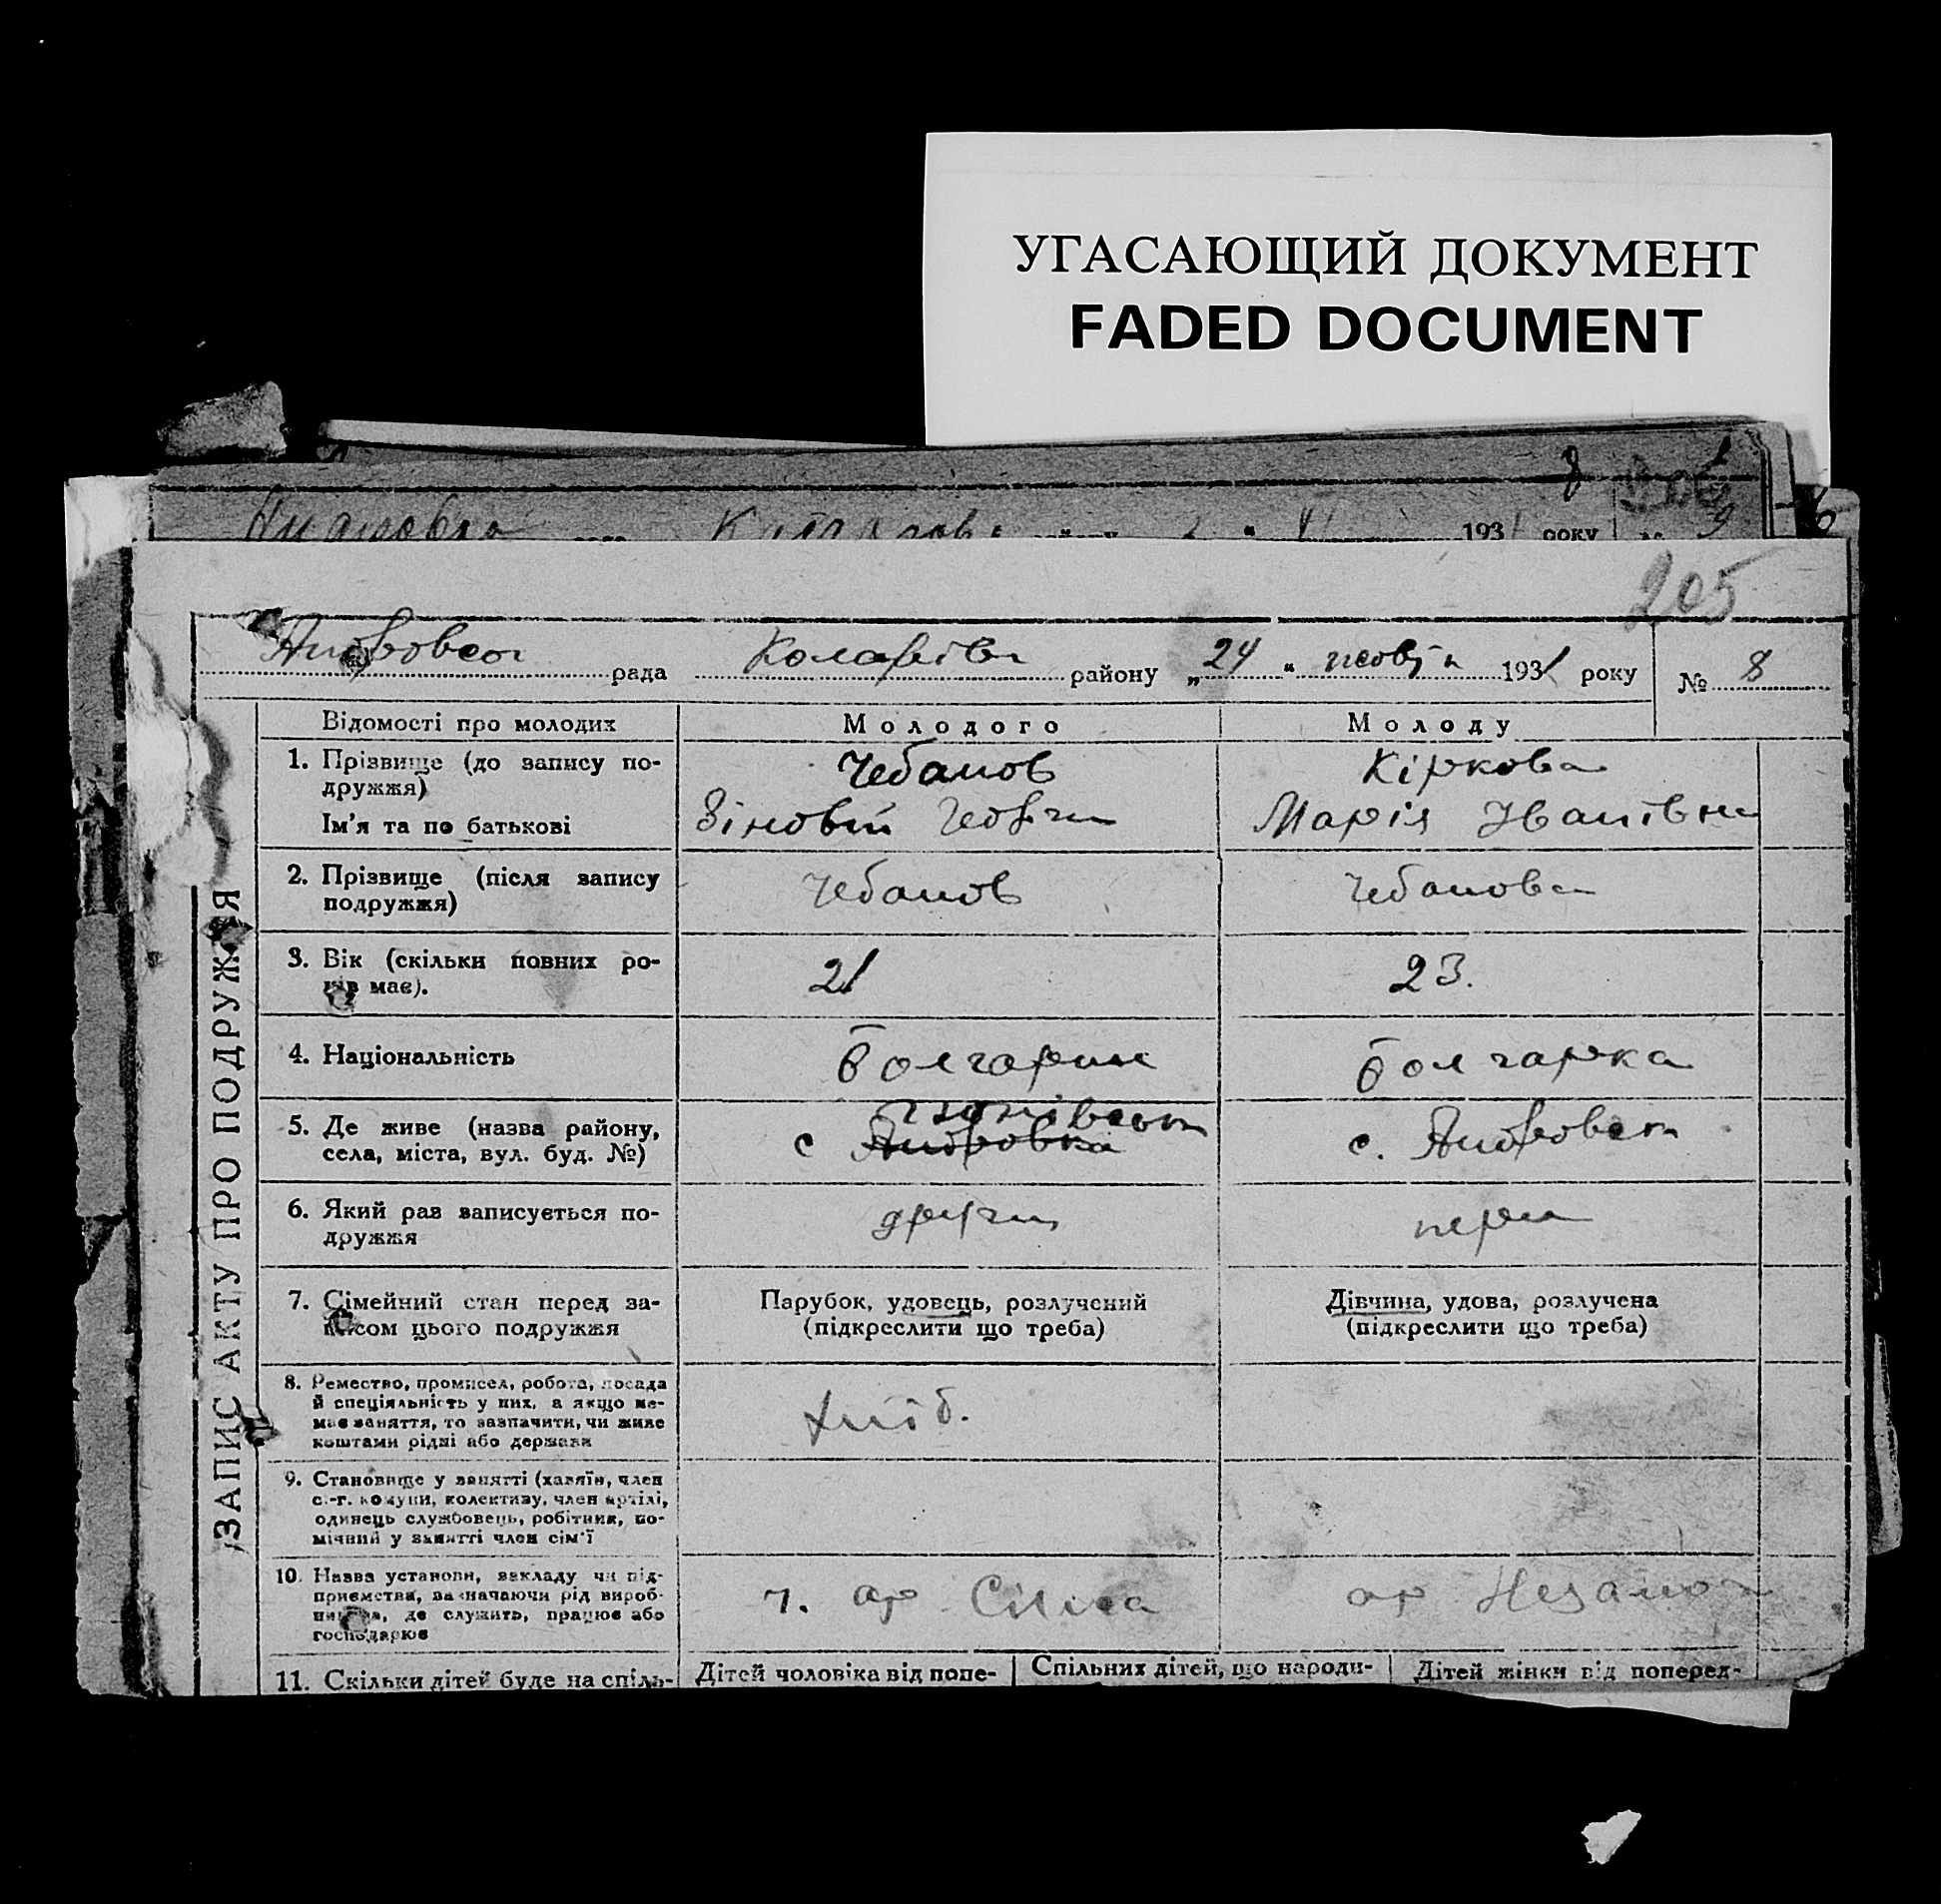 УГАСАЮЩИЙ ДОКУМЕНТ
FADED DOCUMENT
193 року
205
рада Коларівка району „24 “ жовтня 1931 року № 8
ЗАПИС АКТУ ПРО ПОДРУЖЖЯ
Відомості про молодих Молодого Молоду
1. Прізвище (до запису по- Чебанов Кіркова
дружжя)
Ім'я та по батькові Зіновій Марія Іванівна
2. Прізвище (після запису Чебанов Чебанова
подружжя)
3. Вік (скільки повних ро- 21 23.
ків має).
4. Національність болгарин болгарка
5. Де живе (назва району,
села, міста, вул. буд. №) с с.
6. Який раз записується по- перш
дружжя
7. Сімейний стан перед за- Парубок, удовець, розлучений Дівчина, удова, розлучена
писом цього подружжя (підкреслити що треба) (підкреслити що треба)
8. Ремество, промисел, робота, посада
й спеціяльність у них, а якщо не-
має заняття, то зазначити, чи живе хліб.
коштами рідні або держави
9. Становище у занятті (хазяїн, член
с.-г. комуни, колективу, член артілі,
одинець службовець, робітник, по-
мічний у занятті член сім'ї
10. Назва установи, закладу чи під-
приємства, зазначаючи рід вироб- ч. ар ар Незамож
ництва, де служить, працює або
господарює
11. Скільки дітей буде на спіль- Дітей чоловіка від попе- Спільних дітей, що народи- Дітей жінки від поперед-